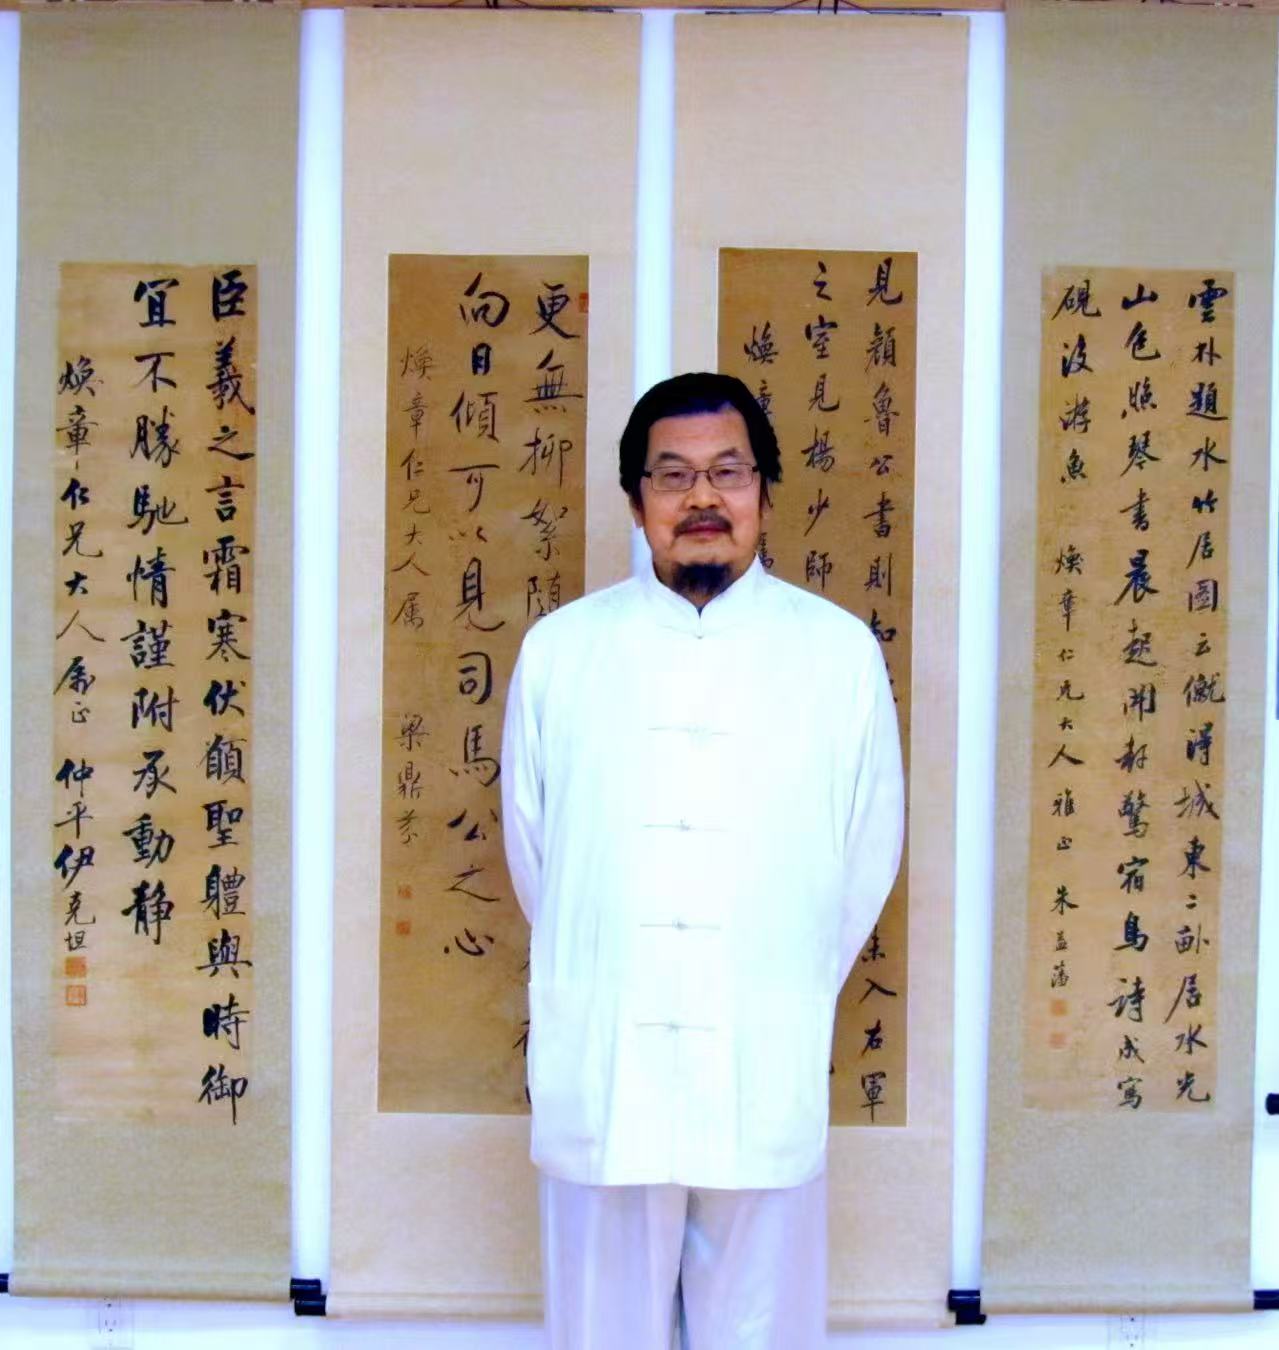 雲朴題水竹居圖云僦得城東二畝居水光
山色照琴書晨起開
驚宿鳥詩成寫
硯波游魚
煥章仁兄大人雅正
朱益藩
見顏魯公書則知
入右軍
之室見楊少師
煥章
更無柳絮隨
向日傾可以見司馬公之心
煥章仁兄大人属
梁鼎芬
臣羲之言霜寒伏願聖體與時御
宜不勝馳情謹附承動静
煥章仁兄大人属正
仲平伊克坦